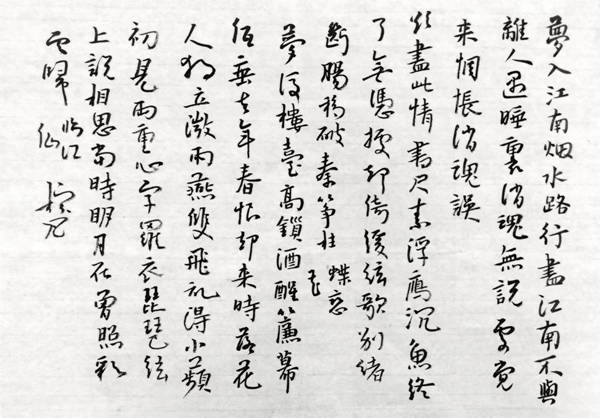 夢入江南烟水路行盡江南不與
離人遇睡裏消魂無説處覺
来惆悵消魂誤
欲盡此情書尺素浮鴈沉魚終
了無憑據却倚緩絃歌别緒
斷腸移破秦箏柱 蝶恋花
夢後樓臺高鎖酒醒簾幕
低垂去年春恨却来時落花
人獨立微雨燕雙飛記得小蘋
初見兩重心字羅衣琵琶絃
上説相思當時明月在曾照彩
雲歸 臨江仙